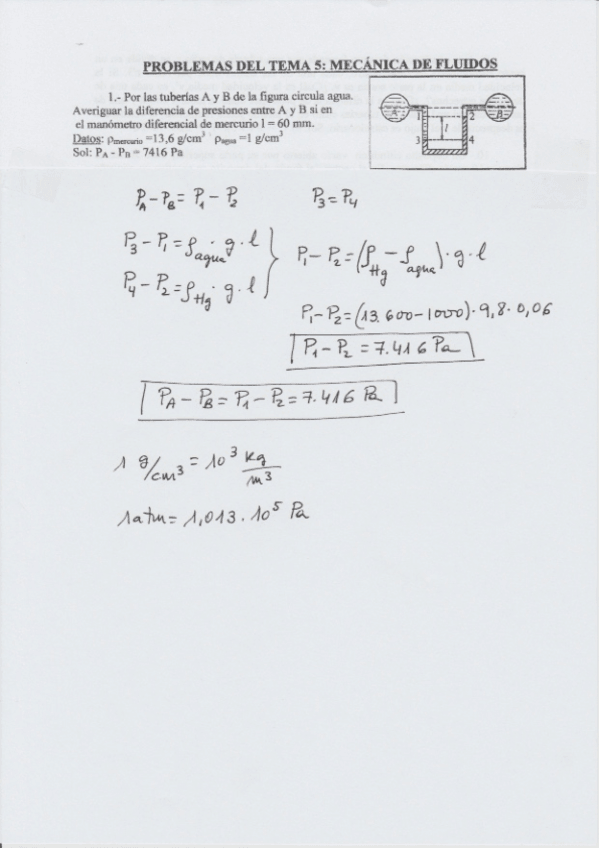 PROBLEMAS DEL TEMA 5: MECÁNICA DE FLUIDOS
1.- Por las tuberías A y B de la figura circula agua.
Averiguar la diferencia de presiones entre A y B si en
el manómetro diferencial de mercurio l = 60 mm.
Datos: ρmercurio =13,6 g/cm³ ρagua =1 g/cm³
Sol: PA - PB = 7416 Pa
A B
1 2
l
3 4
PA - PB = P1 - P2 P3 = P4
P3 - P1 = ρagua · g · l
P4 - P2 = ρHg · g · l
P1 - P2 = (ρHg - ρagua) · g · l
P1 - P2 = (13.600 - 1000) · 9,8 · 0,06
P1 - P2 = 7.416 Pa
PA - PB = P1 - P2 = 7.416 Pa
1 g/cm³ = 10³ kg/m³
1 atm = 1,013 · 10⁵ Pa